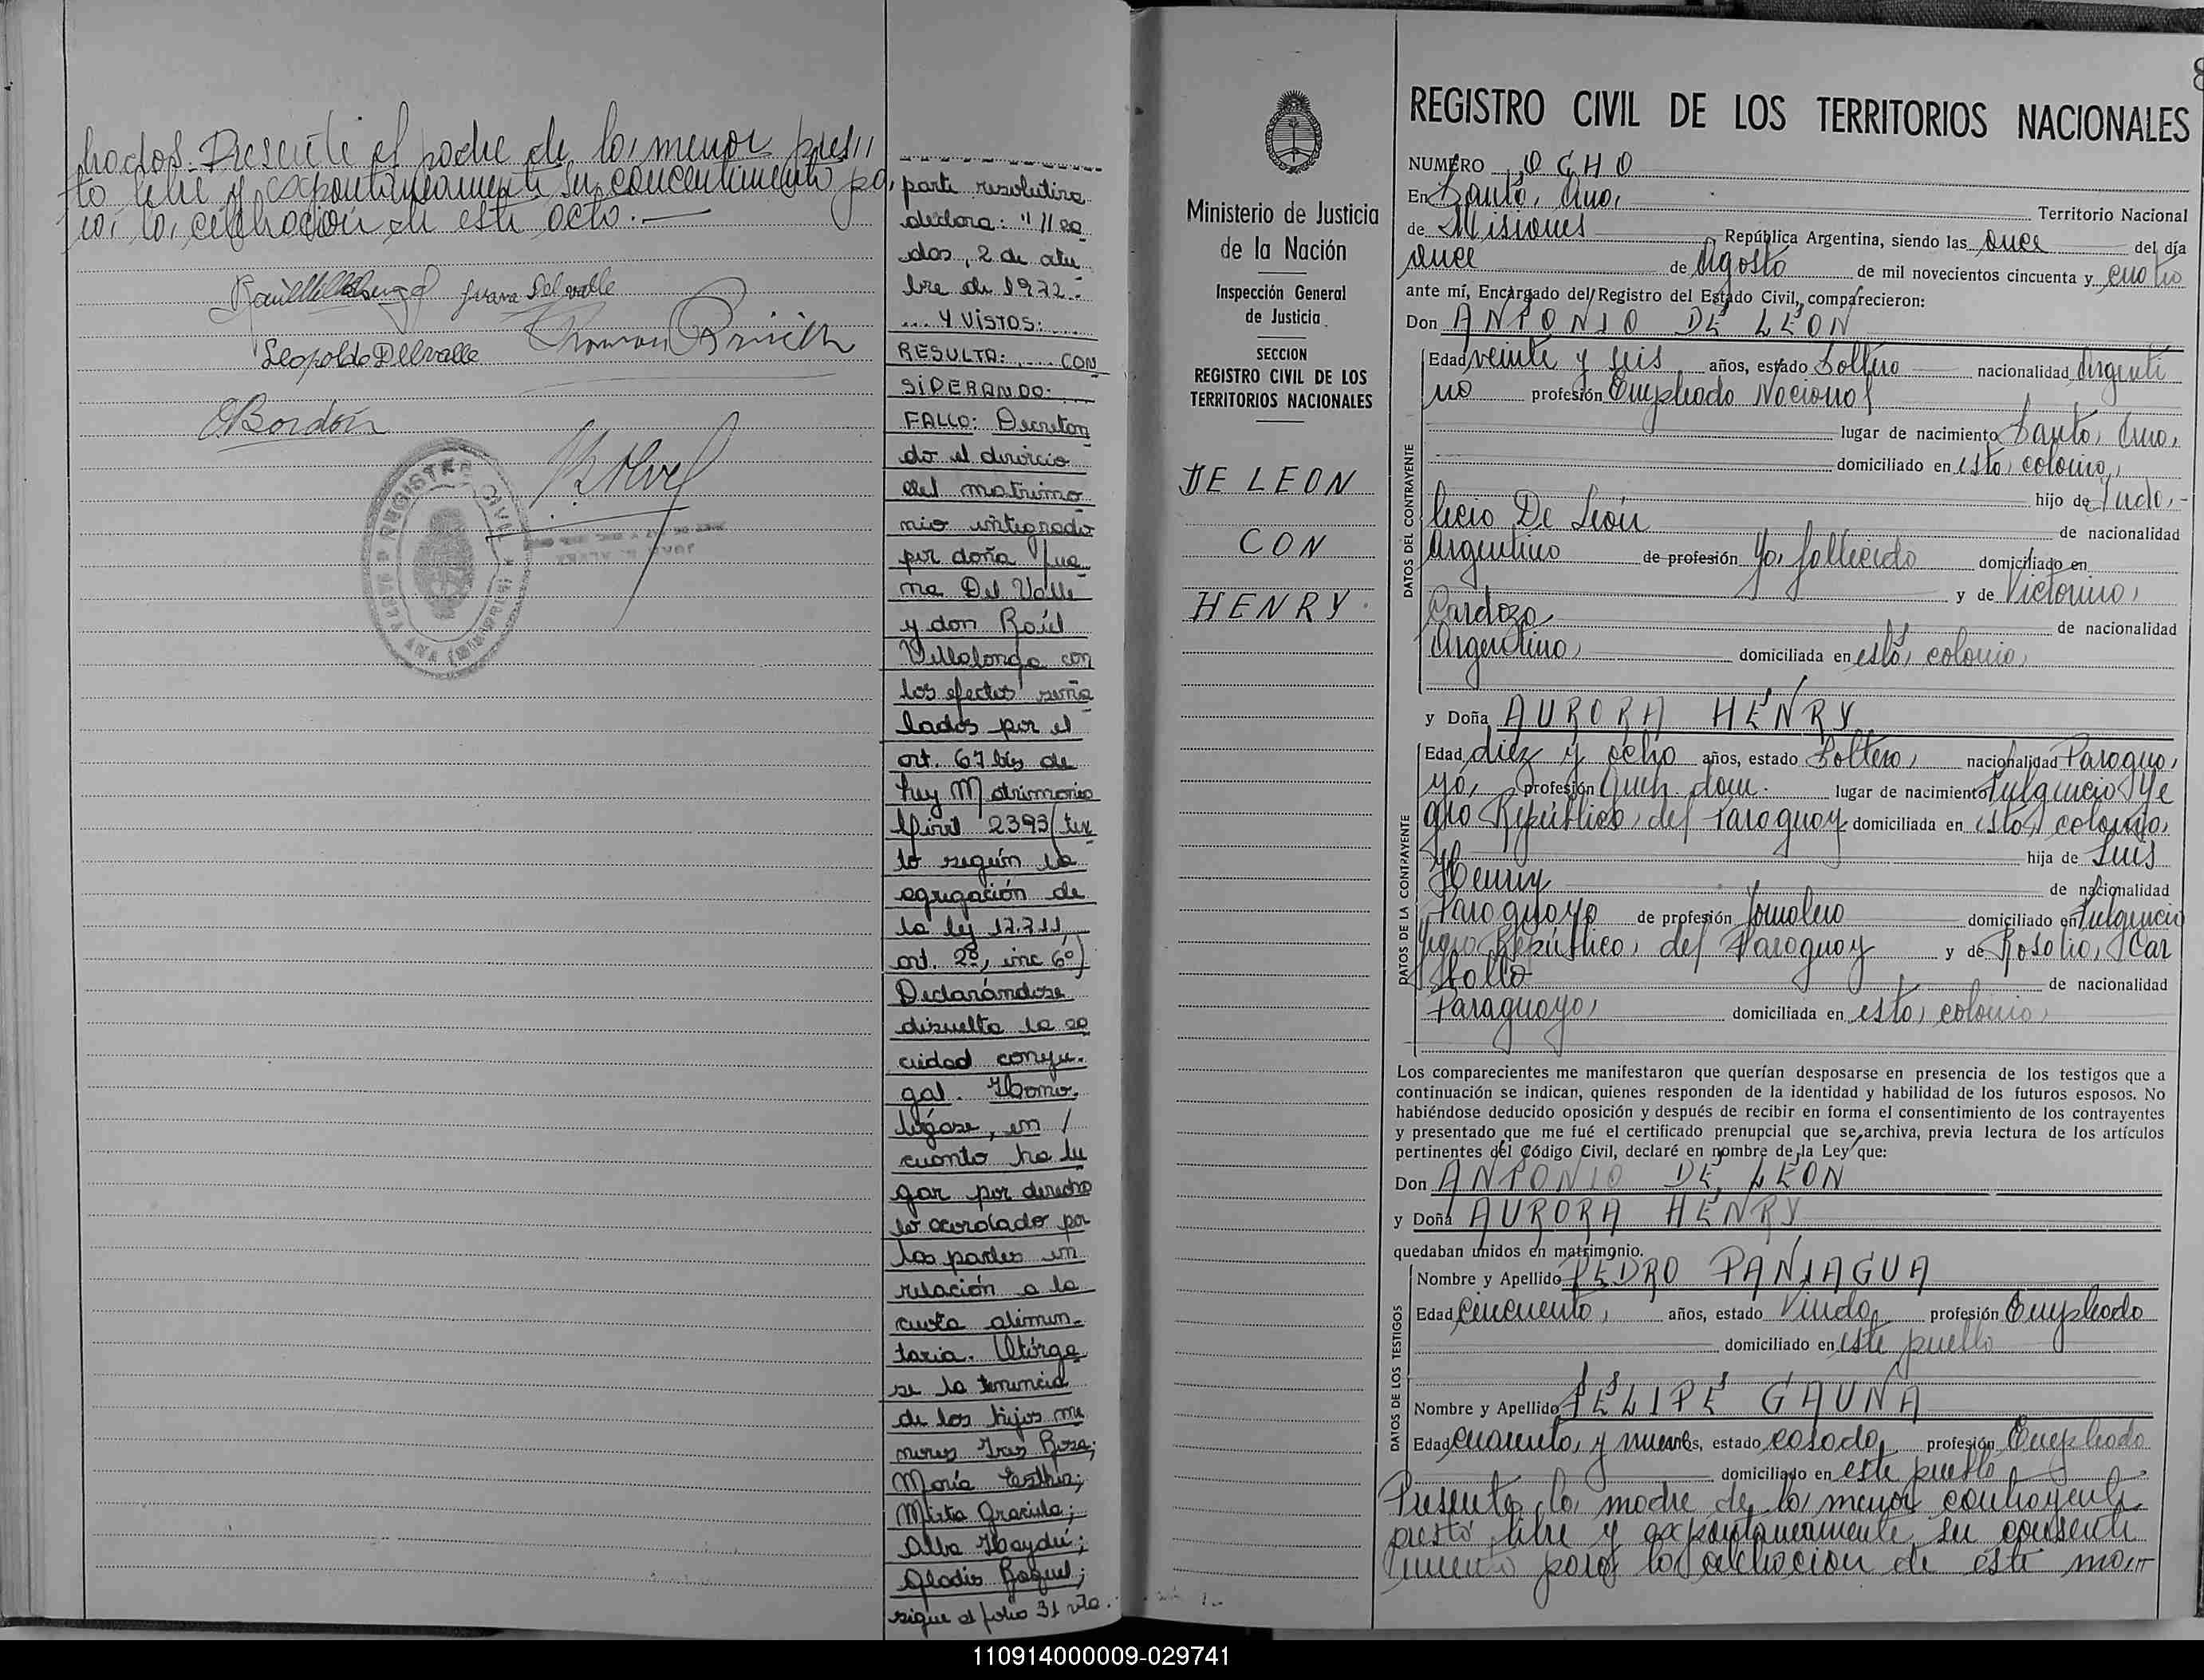 hados. Presente el padre de la menor pres//
to libre y expontaneamente su concentimiento pa,
ra, la, celebración de este acto.—
Raúl Villalonga Juana Delvalle
Leopoldo Delvalle Roman
Bordón
REGISTRO CIVIL
SANTA ANA (Misiones)
JUAN B. ALVEZ
parte resolutiva
declara: "//sa
das, 2 de atu
bre de 1972.-
... Y VISTOS: ...
RESULTA: ... CON
SIDERANDO: ...
FALLO: Decretan
do el divorcio
del matrimo
nio integrado
por doña Jua
na Del Valle
y don Raúl
Villalonga con
los efectos seña
lados por el
art. 67 bis de
Ley Matrimonio
Civil 2393 (tex
to según la
agregación de
la ley 17.711,
art. 2º, inc 6º)
Declarándose
disuelta la so
ciedad conyu-
gal. Homo-
lógase, en /
cuanto ha lu
gar por derecho
lo acordado por
las partes en
relación a la
cuota alimen-
taria. Otórga
se la tenencia
de los hijos me
nores Iras Rosa;
María Esther;
Mirta Graciela;
Alba Haydeé;
Gladis Raquel;
sigue al folio 31 vta.
Ministerio de Justicia
de la Nación
Inspección General
de Justicia
SECCION
REGISTRO CIVIL DE LOS
TERRITORIOS NACIONALES
DE LEON
CON
HENRY
8
REGISTRO CIVIL DE LOS TERRITORIOS NACIONALES
NUMERO OCHO
En Santa, Ana, Territorio Nacional
de Misiones República Argentina, siendo las once del día
once de Agosto de mil novecientos cincuenta y cuatro
ante mí, Encargado del Registro del Estado Civil, comparecieron:
Don ANTONIO DE LEON
DATOS DEL CONTRAYENTE
Edad veinte y seis años, estado Soltero nacionalidad Argenti
no profesión Empleado Nacional
lugar de nacimiento Santa, Ana,
domiciliado en esta, colonia,
hijo de Inda,-
lecio De León de nacionalidad
Argentino de profesión Ya, fallecido domiciliado en
y de Victorina,
Cardozo de nacionalidad
Argentina, domiciliada en esta, colonia,
y Doña AURORA HENRY
DATOS DE LA CONTRAYENTE
Edad diez y ocho años, estado Soltera, nacionalidad Paragua,
ya, profesión Queh. dom. lugar de nacimiento Fulgencio Ye
gro República, del Paraguay domiciliada en esta, colonia,
hija de Luis
Henry de nacionalidad
Paraguayo de profesión Jornalero domiciliado en Fulgencio
Yegro República, del Paraguay y de Rosalia, Car
ballo de nacionalidad
Paraguaya, domiciliada en esta, colonia,
Los comparecientes me manifestaron que querían desposarse en presencia de los testigos que a
continuación se indican, quienes responden de la identidad y habilidad de los futuros esposos. No
habiéndose deducido oposición y después de recibir en forma el consentimiento de los contrayentes
y presentado que me fué el certificado prenupcial que se archiva, previa lectura de los artículos
pertinentes del Código Civil, declaré en nombre de la Ley que:
Don ANTONIO DE LEON
y Doña AURORA HENRY
quedaban unidos en matrimonio.
DATOS DE LOS TESTIGOS
Nombre y Apellido PEDRO PANIAGUA
Edad cincuenta, años, estado Viudo, profesión Empleado
domiciliado en este pueblo
Nombre y Apellido FELIPE GAUNA
Edad cuarenta, y nueve años, estado casado, profesión Empleado
domiciliado en este pueblo
Presente, la, madre de, la, menor contrayente
prestó libre y expontaneamente, su consenti
miento para, la, celebracion de este ma,tr
110914000009-029741